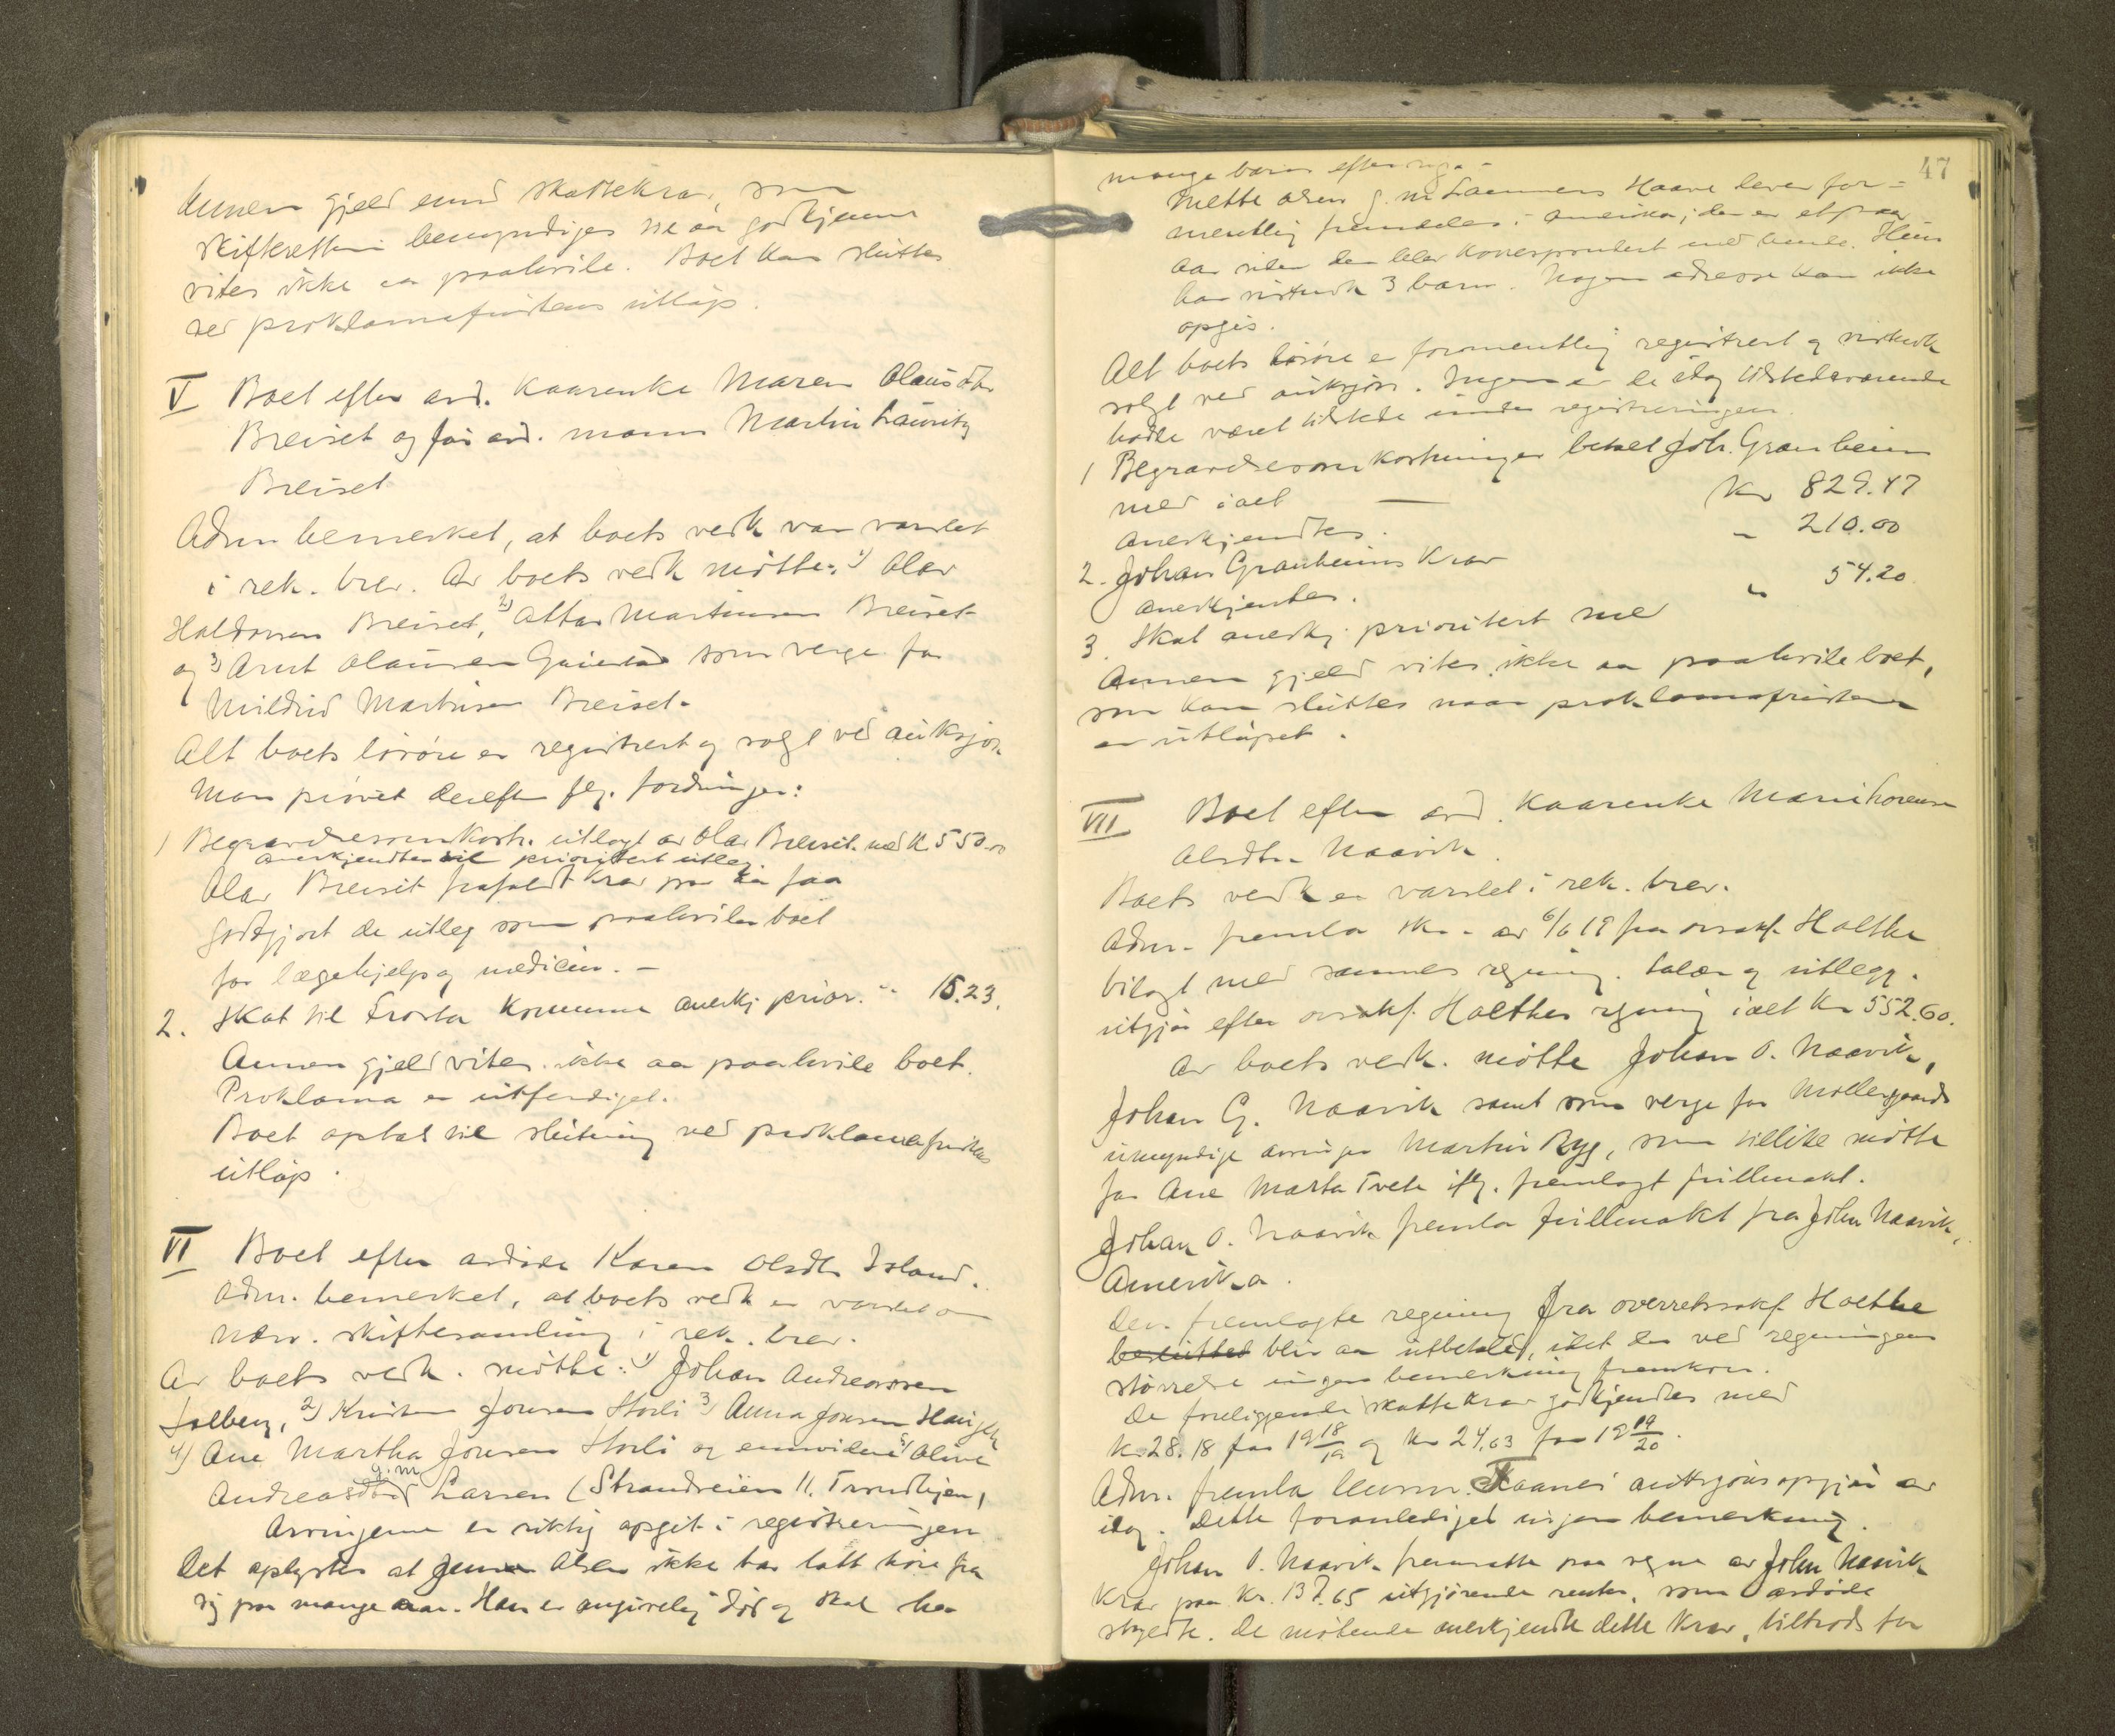 Annen gjeld enn skattekrav, som
skifteretten bemyndiges til aa godkjenne
vites ikke aa paahvile. Boet kan sluttes
ved proklamafristens utløp.
V Boet efter avd. kaarenke Maren Olausdtr
Breiset og før avd. mann Martin Lauritz
Breiset
Adm bemerket, at boets vedk var varslet
i rek. brev. Av boets vedk møtte: 1) Olav
Haldorsen Breiset, 2) Martinsen Breiset
og 3) Arnt Olausen som verge for
Mildrid Martinsen Breiset.
Alt boets løsøre er registrert og solgt ved auksjon
Man prøvet derefter flg. fordringer:
1 Begravelsesomkostn. utlagt av Olav Breiset med kr. 550.00
anerkjendtes til prioritert utlæg.
Olav Breiset frafaldt krav paa aa faa
godtgjort de utleg som paahviler boet
for lægehjelp og medicin. -
2. Skat til Frosta kommune anerkj. prior. - 15.23.
Annen gjeld vites ikke aa paahvile boet.
Proklama er utferdiget.
Boet optas til slutning ved proklamafristens
utløp.
VI Boet efter avdøde Karen Olsdtr Island.
Adm. bemerket, at boets vedk er varslet om
nærv. skiftesamling i rek. brev.
Av boets vedk. møtte: 1) Johan Andreassen
Solberg, 2) Jonsen Storli 3) Anna Jonsen
4) Ane Martha Jonsen Storli og 5) Oline
Andreasdtr g.m. Larsen (Strandveien 11. Trondhjem)
Arvingerne er riktig opgit i registreringen
Det oplystes at Jens Olsen ikke har latt høre fra
sig paa mange aar. Han er angivelig død og skal ha
47
mange barn efter sig. -
Mette Olsen g. m. Haave lever for-
mentlig fremdeles i Amerika; det er et par
aar siden der blev korrespondert med hende. Hun
har vistnok 3 barn. Nogen adresse kan ikke
opgis.
Alt boets løsøre er formentlig registrert og vistnok
solgt ved auksjon. Ingen av de idag tilstedeværende
hadde været tilstede under registreringen.
1 Begravelsesomkostninger betalt Joh. Granheim
med ialt - Kr 829.47
Anerkjendtes.
2. Johan Granheims krav - 210.00
anerkjentes.
3. Skat anerkj. prioritert med " 54.20
Annen gjeld vites ikke aa paahvile boet,
som kan sluttes naar proklamafristen
er utløpet.
VII Boet efter avd. kaarenke Marit
Olsdtr Naavik.
Boets vedk er varslet i rek. brev.
Adm. fremla skr. av 6/6 19 fra ovsakf. Holthe
bilagt med sammes regning. Salær og utlegg.
utgjør efter ovsakf. Holthes regning ialt kr 552.60.
Av boets vedk. møtte Johan O. Naavik,
Johan G. Naavik samt som verge for Møllegaards
umyndige arvinger Martin Ryg, som tillike møtte
for Ane Marta Tvete iflg. fremlagt fullmakt.
Johan O. Naavik fremla fullmakt fra John Naavik,
Amerika.
Den fremlagte regning fra overretssakf. Holthe
besluttet blir aa utbetale, idet der ved regningens
størrelse ingen bemerkning fremkom.
De foreliggende skattekrav godkjendtes med
kr. 28.18 for 19 18/19 og kr 24,63 for 19 19/20.
Adm. fremla auksjonsopgjør av
idag. Dette foranlediget ingen bemerkning.
Johan O. Naavik fremsatte paa vegne av John Naavik
krav paa kr. 137.65 utgjørende renter, som avdøde
skyldte. De møtende anerkjendte dette krav, tiltrods for